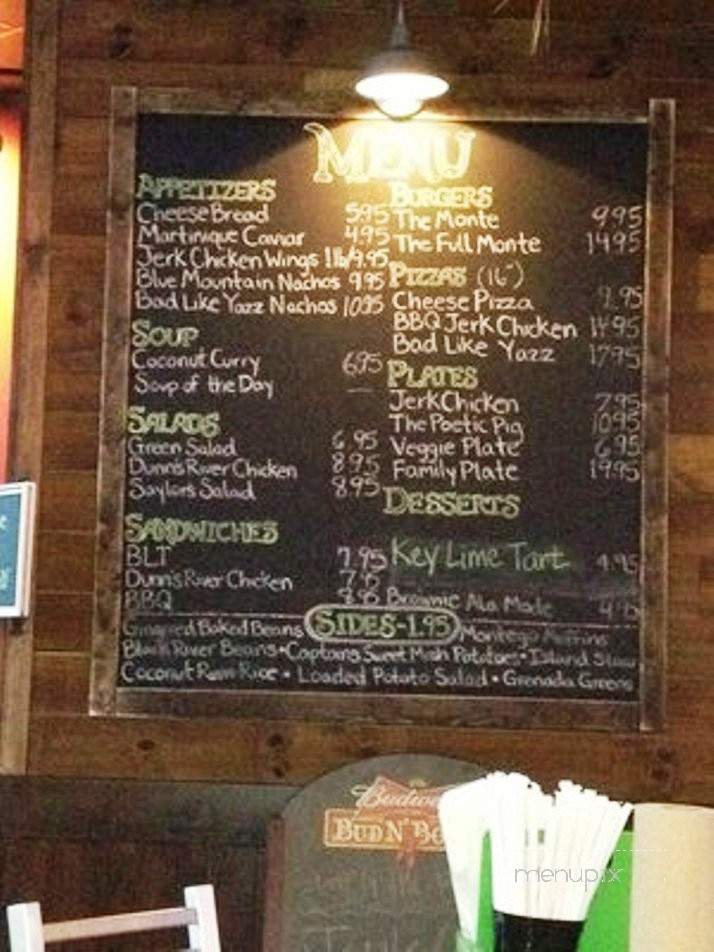 MENU
APPETIZERS
Cheese Bread 5.95
Martinique Caviar 4.95
Jerk Chicken Wings 1 lb/9.95
Blue Mountain Nachos 9.95
Bad Like Yazz Nachos 10.95
SOUP
Coconut Curry 6.95
Soup of the Day
SALADS
Green Salad 6.95
Dunn's River Chicken 8.95
Saylors Salad 8.95
SANDWICHES
BLT 7.95
Dunn's River Chicken 7.95
BBQ 8.95
BURGERS
The Monte 9.95
The Full Monte 14.95
PIZZAS (16")
Cheese Pizza 9.95
BBQ Jerk Chicken 14.95
Bad Like Yazz 17.95
PLATES
Jerk Chicken 7.95
The Poetic Pig 10.95
Veggie Plate 6.95
Family Plate 19.95
DESSERTS
Key Lime Tart 4.95
Brownie Ala Mode 4.95
SIDES-1.95
Gingered Baked Beans Montego Muffins
Black River Beans • Captains Sweet Mash Potatoes • Island Slaw
Coconut Rum Rice • Loaded Potato Salad • Grenada Greens
BUD N'
menupix